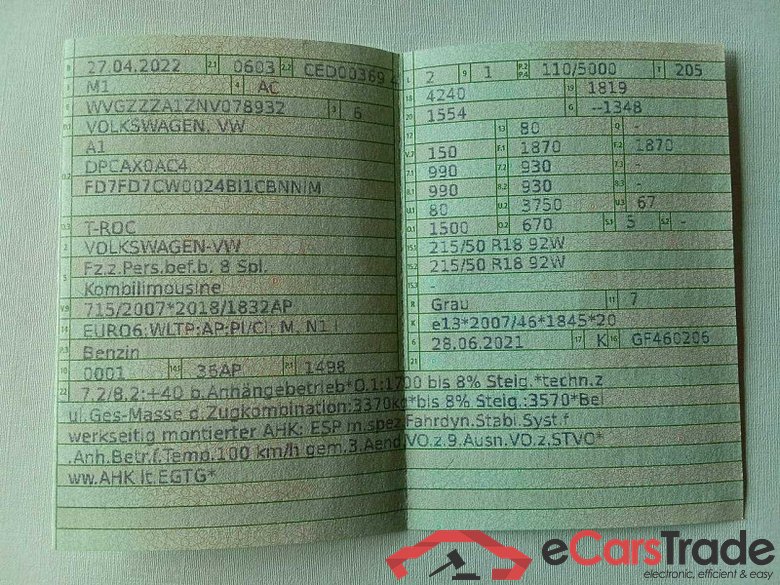 B 27.04.2022 2.1 0603 2.2 CED00369 4
J M1 4 AC
E WVGZZZA1ZNV078932 3 6
D.1 VOLKSWAGEN, VW
A1
D.2 DPCAX0AC4
FD7FD7CW0024BI1CBNNIM
D.3 T-ROC
2 VOLKSWAGEN-VW
5 Fz.z.Pers.bef.b. 8 Spl.
Kombilimousine
V.9 715/2007*2018/1832AP
14 EURO6;WLTP;AP;PI/CI; M, N1 I
P.3 Benzin
10 0001 14.1 36AP P.1 1498
L 2 9 1 P.2 P.4 110/5000 T 205
18 4240 19 1819
20 1554 G --1348
12 - 13 80 Q -
V.7 150 F.1 1870 F.2 1870
7.1 990 7.2 930 7.3 -
8.1 990 8.2 930 8.3 -
U.1 80 U.2 3750 U.3 67
O.1 1500 O.2 670 S.1 5 S.2 -
15.1 215/50 R18 92W
15.2 215/50 R18 92W
15.3 -
R Grau 11 7
K e13*2007/46*1845*20
6 28.06.2021 17 K 16 GF460206
21
22 7.2/8.2:+40 b.Anhängebetrieb*O.1:1700 bis 8% Steig.*techn.z
ul.Ges-Masse d.Zugkombination:3370kg*bis 8% Steig.:3570*Bei
werkseitig montierter AHK: ESP m.spez.Fahrdyn.Stabi.Syst.f
.Anh.Betr.f.Temp.100 km/h gem.3.Aend.VO.z.9.Ausn.VO.z.STVO*
ww.AHK lt.EGTG*
eCarsTrade
electronic, efficient & easy